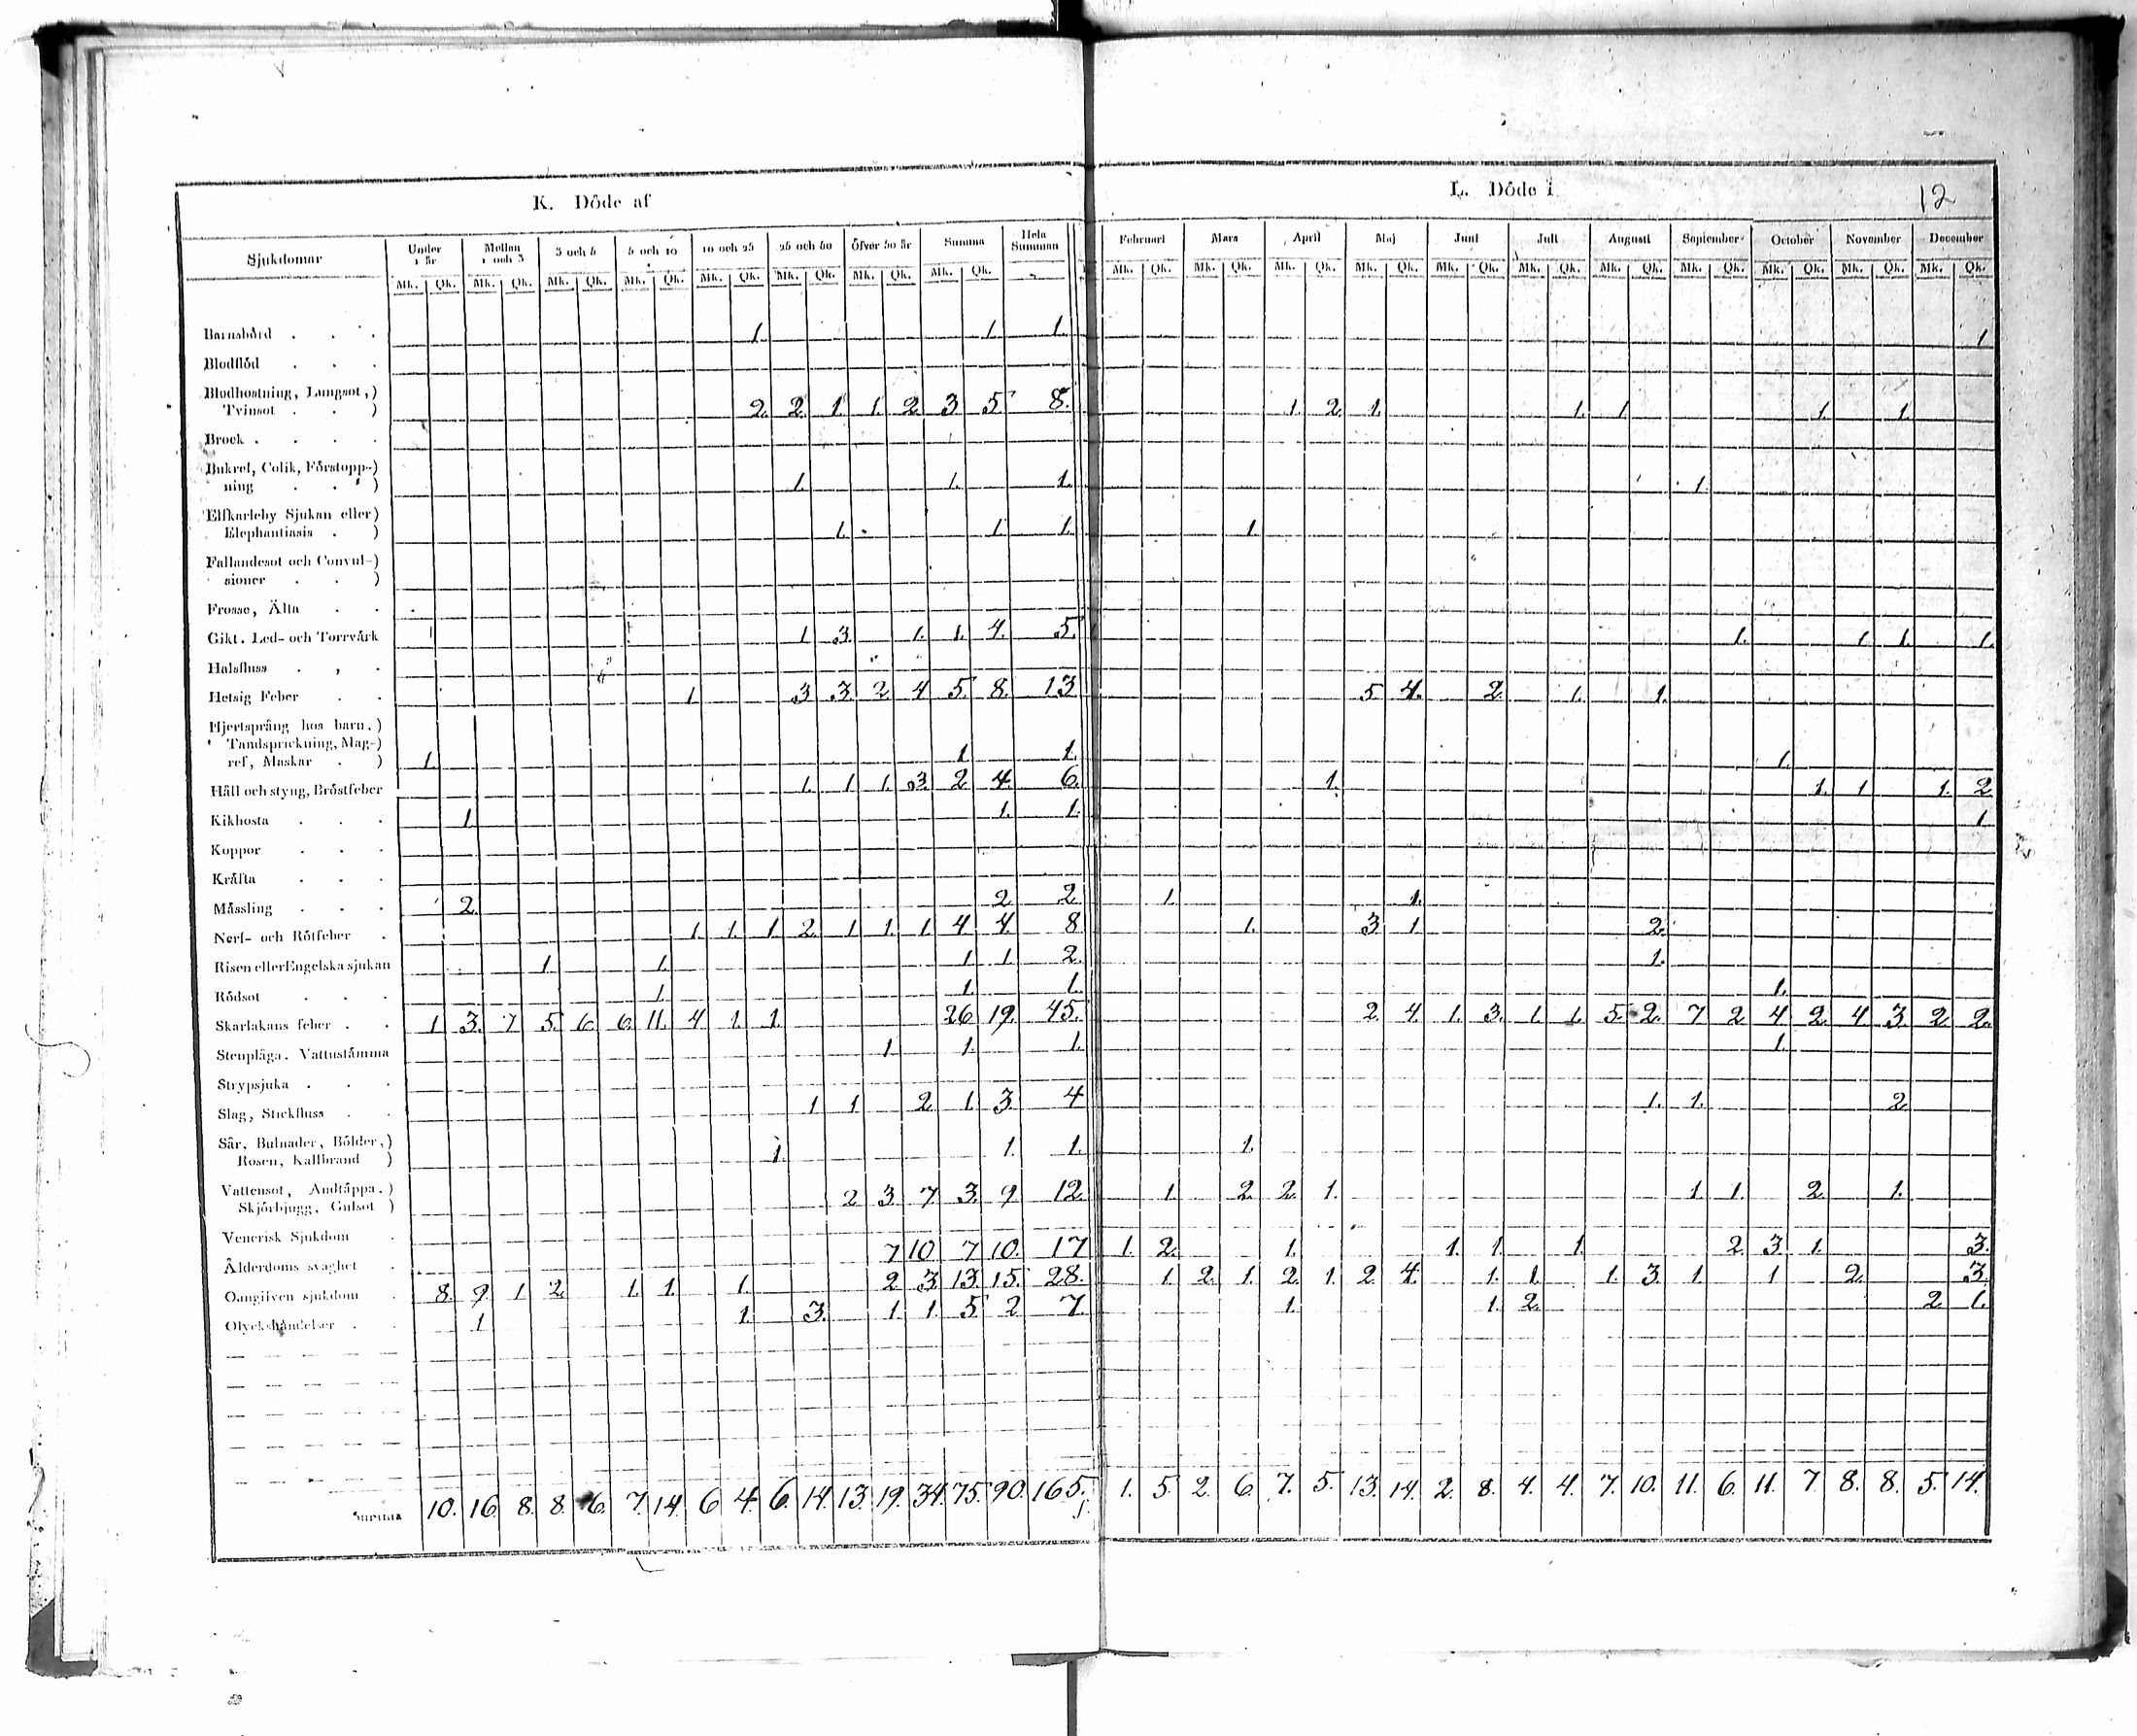 K. Döde af
L. Döde i
12
Sjukdomar Under 1 år Mellan 1 och 3 3 och 5 5 och 10 10 och 25 25 och 50 Öfver 50 år Summa Hela Summan Februari Mars April Maj Juni Juli Augusti September October November December
Mk. Qk. Mk. Qk. Mk. Qk. Mk. Qk. Mk. Qk. Mk. Qk. Mk. Qk. Mk. Qk. Mk. Qk. Mk. Qk. Mk. Qk. Mk. Qk. Mk. Qk. Mk. Qk. Mk. Qk. Mk. Qk. Mk. Qk. Mk. Qk. Mk. Qk.
Barnsbörd . . . 1. 1. 1. 1
Blodflöd . . .
Blodhostning, Lungsot,)
Tvinsot . . ) 2. 2. 1. 1. 2 3 5 8. 1. 2. 1. 1. 1. 1. 1.
Brock . . . .
Bukref, Colik, Förstopp-)
ning . . ) 1. 1. 1. 1.
Elfkarleby Sjukan eller)
Elephantiasis . ) 1. 1. 1. 1.
Fallandesot och Convul-)
sioner . . )
Frossa, Älta . .
Gikt. Led- och Torrvärk 1 3. 1. 1. 4. 5. 1. 1. 1. 1.
Halsfluss . , .
Hetsig Feber . . 1. 3 3. 2 4 5. 8. 13 5. 4. 2. 1. 1.
Hjertsprång hos barn.)
Tandsprickning, Mag-)
ref, Maskar . ) 1. 1 1. 1.
Håll och styng, Bröstfeber 1. 1 1. 3. 2 4. 6. 1. 1. 1 1. 2
Kikhosta . . . 1. 1. 1. 1
Koppor . . .
Kräfta . . .
Mässling . . . 2. 2 2. 1. 1.
Nerf- och Rötfeber . 1. 1. 1. 2. 1. 1. 1. 4 4. 8 1. 3. 1 2.
Risen eller Engelska sjukan 1. 1. 1. 1. 2. 1.
Rödsot . . . 1. 1. 1. 1.
Skarlakans feber . . 1 3. 7 5. 6. 6. 11. 4 1. 1. 26 19. 45. 2. 4. 1. 3. 1. 1. 5. 2. 7. 2 4 2. 4 3. 2. 2.
Stenplåga. Vattustämma 1. 1. 1. 1.
Strypsjuka . . .
Slag, Stickfluss . . 1 1 2. 1. 3. 4 1. 1. 2
Sår, Bulnader, Bölder,)
Rosen, Kallbrand ) 1. 1. 1. 1.
Vattensot, Andtäppa.)
Skjörbjugg, Gulsot ) 2 3. 7. 3. 9. 12. 1. 2. 2. 1. 1. 1. 2. 1.
Venerisk Sjukdom .
Ålderdoms svaghet . 7 10. 7 10. 17 1. 2. 1. 1. 1. 1. 2. 3. 1. 3.
Oangifven sjukdom . 8. 9. 1. 2. 1. 1. 1. 2 3. 13. 15. 28. 1. 2. 1. 2. 1. 2. 4. 1. 1. 1. 3. 1. 1 2. 3.
Olyckshändelser . . 1 1. 3. 1. 1. 5. 2 7. 1. 1. 2. 2. 1.
Summa 10. 16 8. 8. 6. 7. 14. 6 4. 6. 14. 13. 19. 34. 75. 90. 165. 1. 5. 2. 6. 7. 5. 13. 14. 2. 8. 4. 4. 7. 10. 11. 6. 11. 7. 8. 8. 5. 14.